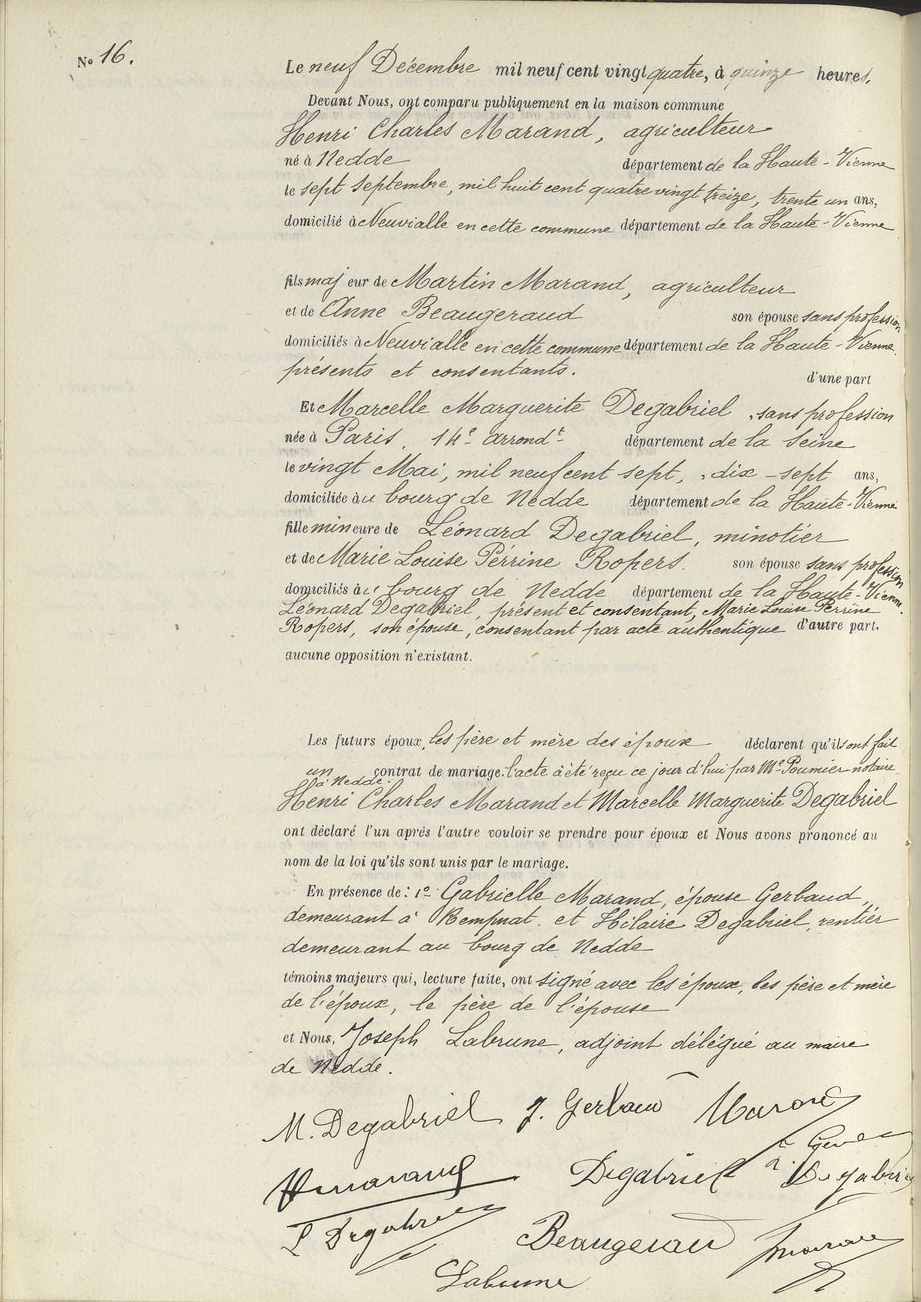 No 16.
Le neuf Décembre mil neuf cent vingt quatre, à quinze heures,
Devant Nous, ont comparu publiquement en la maison commune
Henri Charles Marand, agriculteur
né à Nedde département de la Haute-Vienne
le sept septembre, mil huit cent quatre vingt treize, trente un ans,
domicilié à Neuvialle en cette commune département de la Haute-Vienne
fils majeur de Martin Marand, agriculteur
et de Anne Beaugeraud son épouse sans profession,
domiciliés à Neuvialle en cette commune département de la Haute-Vienne.
présents et consentants. d'une part
Et Marcelle Marguerite Degabriel, sans profession
née à Paris, 14e arrondt département de la Seine
le vingt Mai, mil neuf cent sept, dix-sept ans,
domiciliée au bourg de Nedde département de la Haute-Vienne
fille mineure de Léonard Degabriel, minotier
et de Marie Louise Perrine Ropers. son épouse sans profession
domiciliés à bourg de Nedde département de la Haute-Vienne.
Léonard Degabriel, présent et consentant, Marie Louise Perrine
Ropers, son épouse, consentant par acte authentique d'autre part.
aucune opposition n'existant.
Les futurs époux, les père et mère des époux déclarent qu'ils ont fait
un contrat de mariage. l'acte a été reçu ce jour d'hui par Me Poumier notaire
à Nedde.
Henri Charles Marand et Marcelle Marguerite Degabriel
ont déclaré l'un après l'autre vouloir se prendre pour époux et Nous avons prononcé au
nom de la loi qu'ils sont unis par le mariage.
En présence de : 1° Gabrielle Marand, épouse Gerbaud,
demeurant à Rempnat. et Hilaire Degabriel, rentier
demeurant au bourg de Nedde
témoins majeurs qui, lecture faite, ont signé avec les époux, les père et mère
de l'époux, le père de l'épouse
et Nous, Joseph Labrune, adjoint délégué au maire
de Nedde.
M. Degabriel G. Gerbaud Marand
H marand Degabriel Degabriel
L Degabriel Beaugeraud marand
Labrune